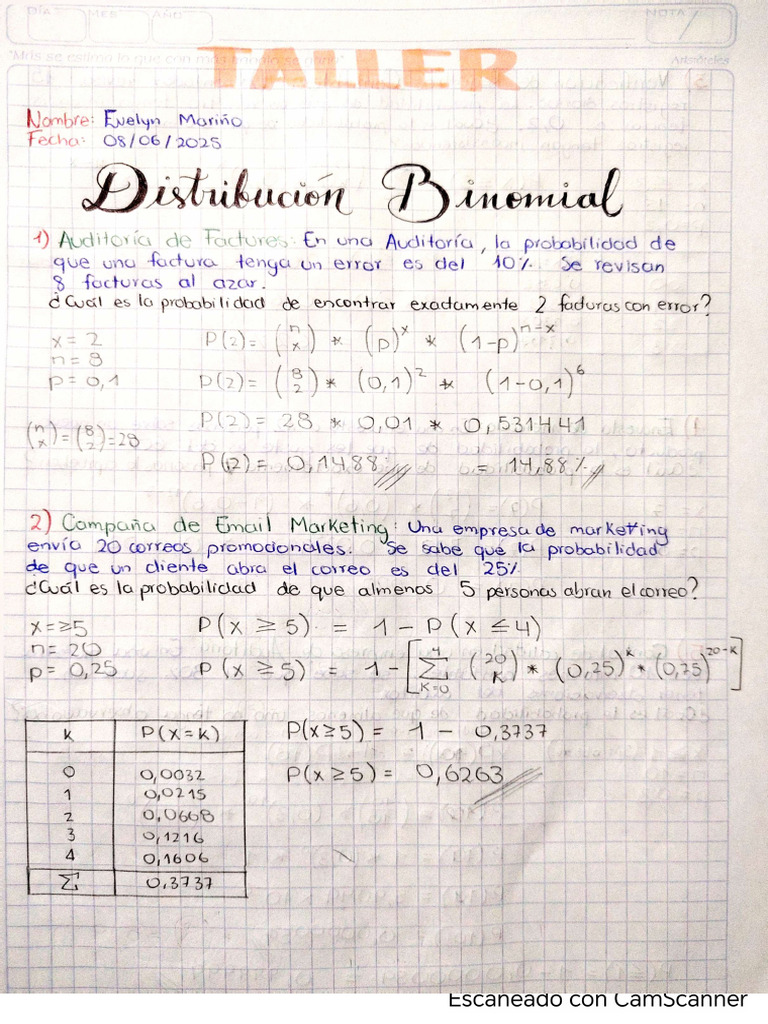 DÍA MES AÑO NOTA
"Más se estima lo que con más trabajo se gana" Aristóteles
TALLER
Nombre: Evelyn Mariño
Fecha: 08/06/2025
Distribución Binomial
1) Auditoría de Factures: En una Auditoría, la probabilidad de
que una factura tenga un error es del 10%. Se revisan
8 facturas al azar.
¿Cuál es la probabilidad de encontrar exactamente 2 facturas con error?
x = 2 P(2) = (n x) * (p)^x * (1-p)^n-x
n = 8
p = 0,1 P(2) = (8 2) * (0,1)^2 * (1-0,1)^6
P(2) = 28 * 0,01 * 0,531441
(n x) = (8 2) = 28
P(2) = 0,1488 = 14,88%
2) Campaña de Email Marketing: Una empresa de marketing
envía 20 correos promocionales. Se sabe que la probabilidad
de que un cliente abra el correo es del 25%
¿Cuál es la probabilidad de que almenos 5 personas abran el correo?
x = ≥5 P(x ≥ 5) = 1 - P(x ≤ 4)
n = 20
p = 0,25 P(x ≥ 5) = 1 - [4 Σ K=0 (20 K) * (0,25)^K * (0,75)^20-K]
K P(x = K) P(x ≥ 5) = 1 - 0,3737
0 0,0032 P(x ≥ 5) = 0,6263
1 0,0215
2 0,0668
3 0,1216
4 0,1606
Σ 0,3737
Escaneado con CamScanner